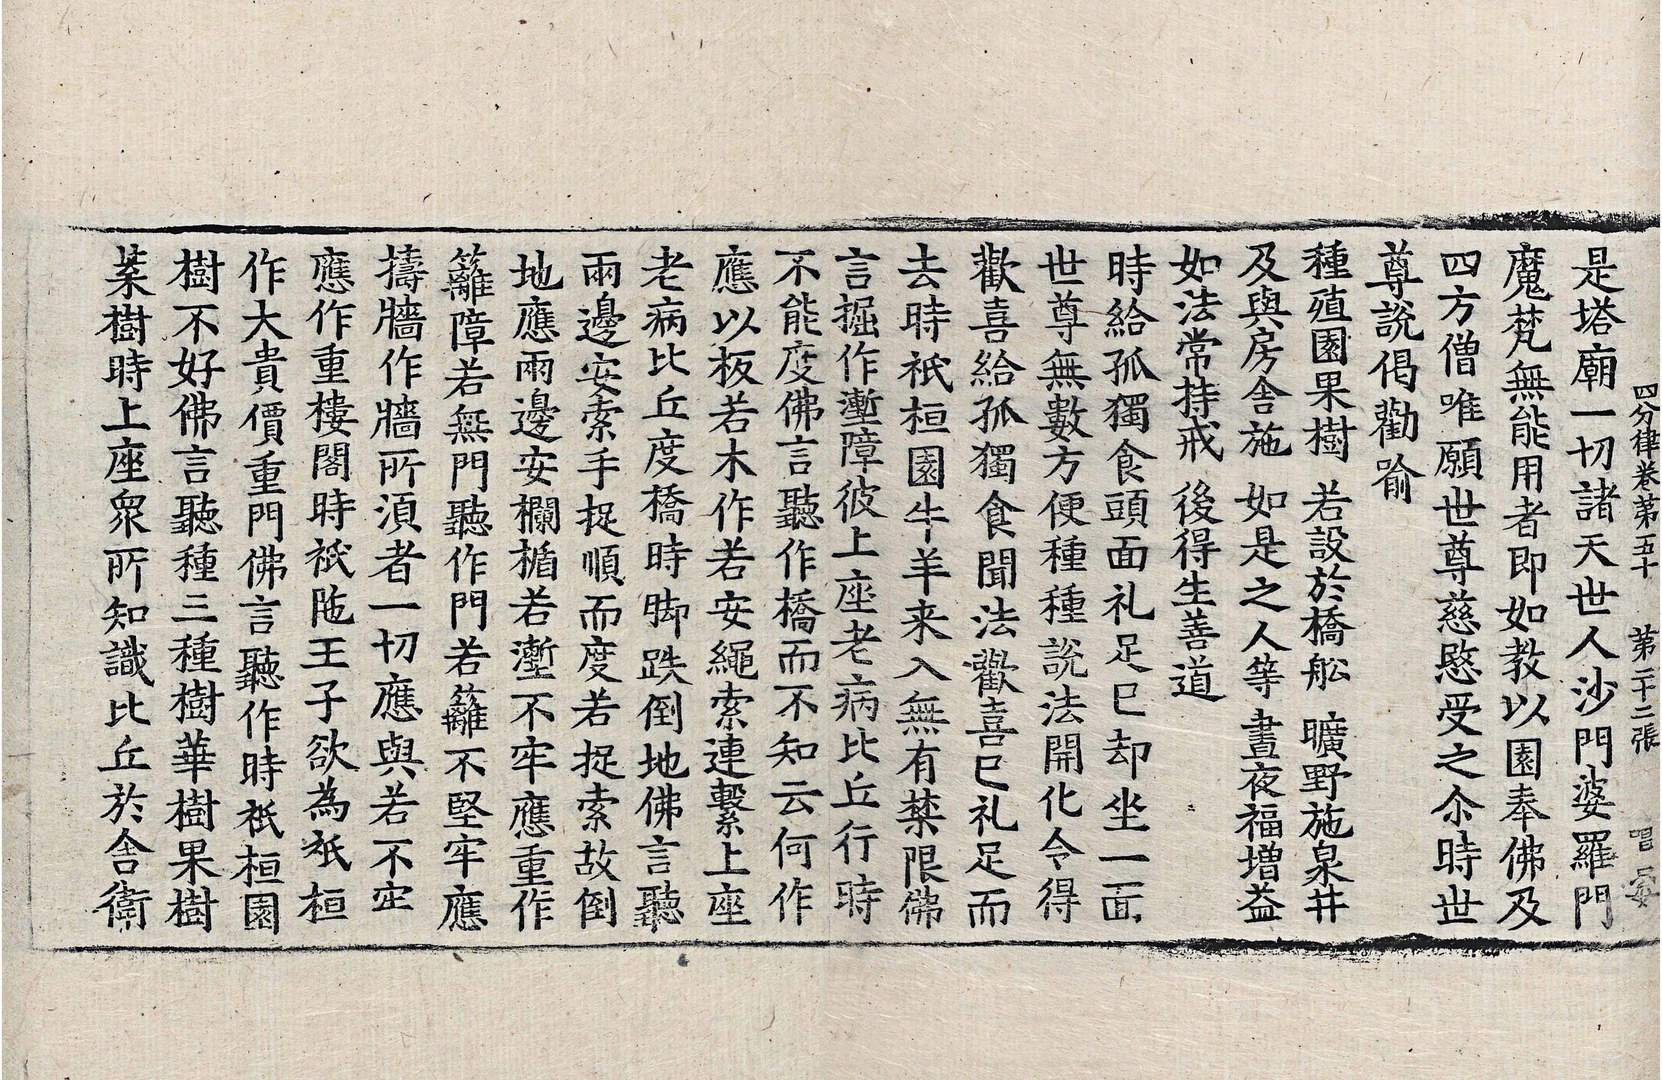 四分律卷第五十　第二十二張　唱 宴
是塔廟一切諸天世人沙門婆羅門
魔梵無能用者即如教以園奉佛及
四方僧唯願世尊慈愍受之尒時世
尊說偈勸喻
種殖園果樹　若設於橋舩　曠野施泉井
及與房舍施　如是之人等　晝夜福增益
如法常持戒　後得生善道
時給孤獨食頭面礼足已却坐一面
世尊無數方便種種說法開化令得
歡喜給孤獨食聞法歡喜已礼足而
去時祇桓園牛羊来入無有禁限佛
言掘作壍障彼上座老病比丘行時
不能度佛言聽作橋而不知云何作
應以板若木作若安繩索連繫上座
老病比丘度橋時脚跌倒地佛言聽
兩邊安索手捉順而度若捉索故倒
地應兩邊安欄楯若壍不牢應重作
籬障若無門聽作門若籬不堅牢應
擣牆作牆所湏者一切應與若不定
應作重樓閣時祇陁王子欲為祇桓
作大貴價重門佛言聽作時祇桓園
樹不好佛言聽種三種樹華樹果樹
葉樹時上座衆所知識比丘於舍衛